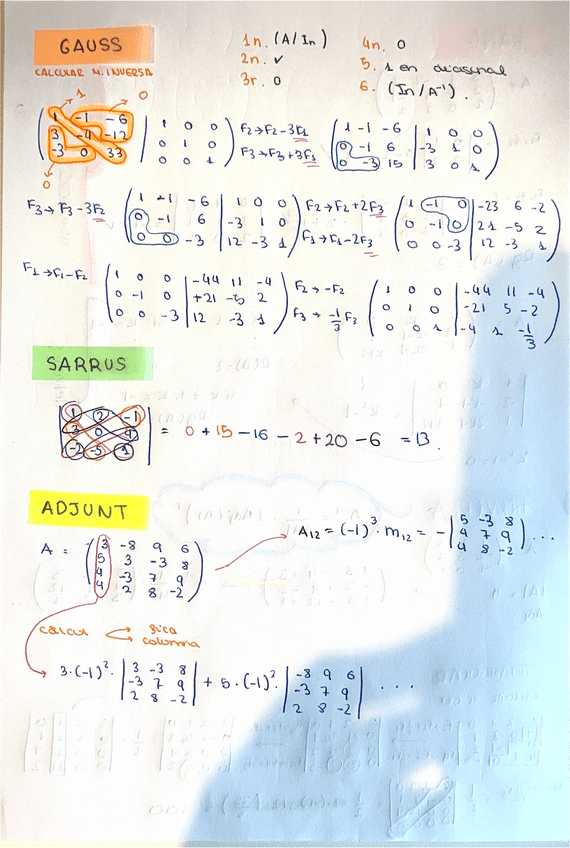 GAUSS
CALCULAR M. INVERSA
1n. (A/In)
2n. ✓
3r. 0
4n. 0
5. 1 en diagonal
6. (In/A⁻¹).
1 0
( 1 -1 -6 | 1 0 0
3 -4 -12 | 0 1 0
-3 0 33 | 0 0 1 )
0
F2→F2-3F1
F3→F3+3F1
( 1 -1 -6 | 1 0 0
0 -1 6 | -3 1 0
0 -3 15 | 3 0 1 )
F3→F3-3F2
( 1 -1 -6 | 1 0 0
0 -1 6 | -3 1 0
0 0 -3 | 12 -3 1 )
F2→F2+2F3
F1→F1-2F3
( 1 -1 0 | -23 6 -2
0 -1 0 | 21 -5 2
0 0 -3 | 12 -3 1 )
F1→F1-F2
( 1 0 0 | -44 11 -4
0 -1 0 | +21 -5 2
0 0 -3 | 12 -3 1 )
F2→-F2
F3→-1/3 F3
( 1 0 0 | -44 11 -4
0 1 0 | -21 5 -2
0 0 1 | -4 1 -1/3 )
SARRUS
| 1 2 -1
3 0 4
-2 -5 1 | = 0 + 15 - 16 - 2 + 20 - 6 = 13.
ADJUNT
A = ( 3 -8 9 6
5 3 -3 8
4 -3 7 9
4 2 8 -2 )
A12 = (-1)³· m12 = - | 5 -3 8
4 7 9
4 8 -2 | ...
columna
3·(-1)²· | 3 -3 8
-3 7 9
2 8 -2 | + 5·(-1)²· | -8 9 6
-3 7 9
2 8 -2 | ....